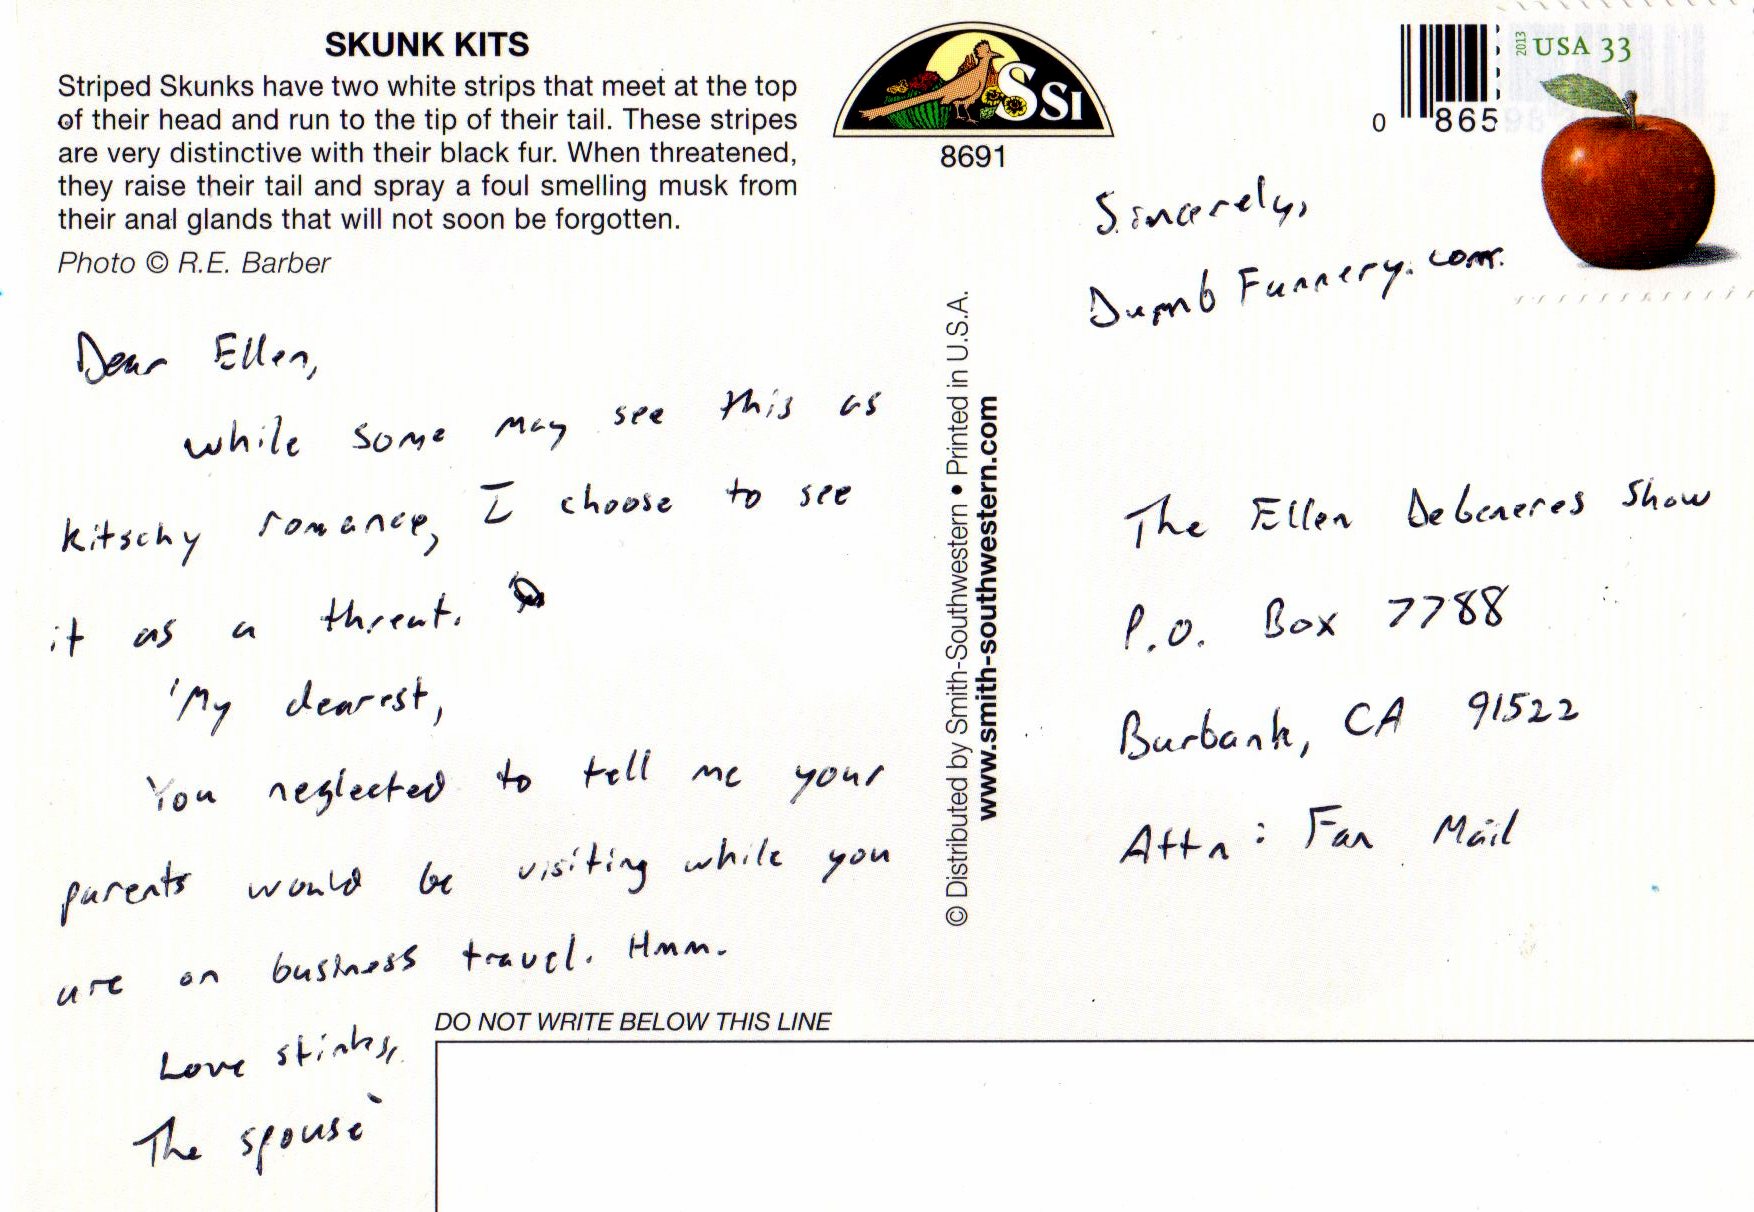 SKUNK KITS
Striped Skunks have two white strips that meet at the top
of their head and run to the tip of their tail. These stripes
are very distinctive with their black fur. When threatened,
they raise their tail and spray a foul smelling musk from
their anal glands that will not soon be forgotten.
Photo © R.E. Barber
Dear Ellen,
While some may see this as
kitschy romance, I choose to see
it as a threat.
'My dearest,
You neglected to tell me your
parents would be visiting while you
are on business travel. Hmm.
Love stinks,
The spouse'
DO NOT WRITE BELOW THIS LINE
SSI
8691
© Distributed by Smith-Southwestern • Printed in U.S.A.
www.smith-southwestern.com
0 865
2013 USA 33
Sincerely,
Dumb Funnery.com.
The Ellen DeGeneres Show
P.O. Box 7788
Burbank, CA 91522
Attn: Fan Mail